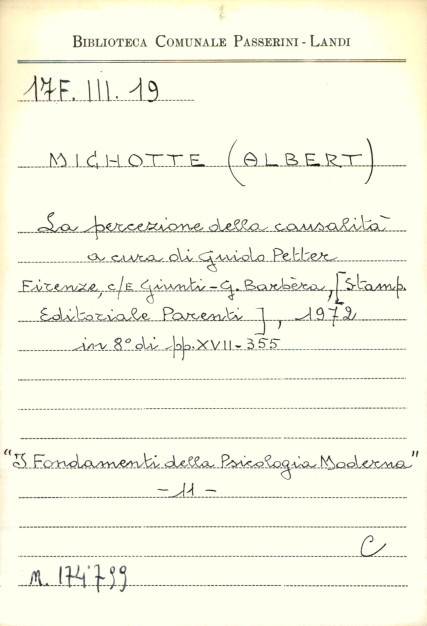 BIBLIOTECA COMUNALE PASSERINI - LANDI
17F. III. 19
MICHOTTE (ALBERT)
La percezione della causalità
a cura di Guido Petter
Firenze, c/E Giunti-G. Barbèra, [Stamp.
Editoriale Parenti], 1972
in 8° di pp. XVII-355
"I Fondamenti della Psicologia Moderna"
- 11 -
C
n. 174'799